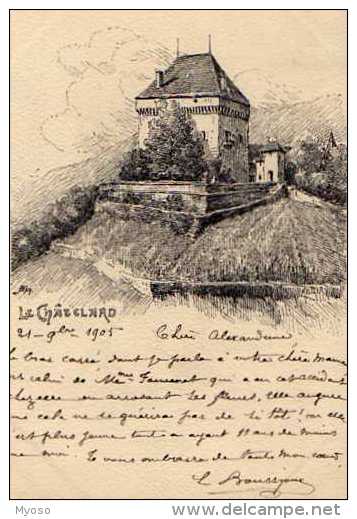 LE CHÂTELARD
21 - 9bre 1905 Chère Alexandrine
le bras cassé dont je parle à votre chère maman
est celui de Mme qui a eu cet accident
chez elle en arrosant ses fleurs, elle
me cela ne se guérira pas de si tôt! elle
est plus jeune ayant 11 ans de moins
que moi. Je vous embrasse de tout mon cœur.
L
Myoso
www.delcampe.net